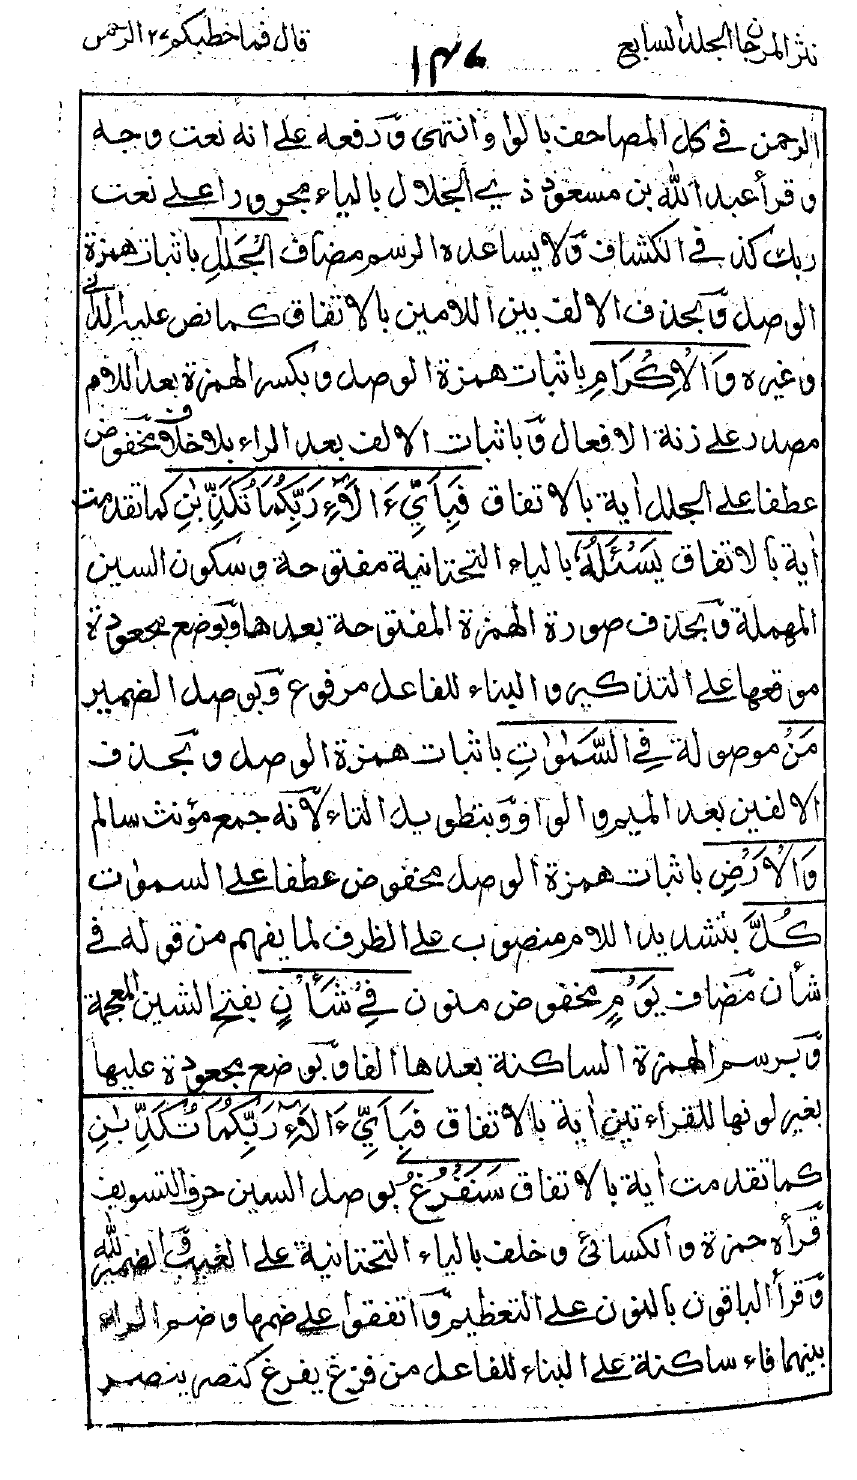 نثر المرجان الجلد السابع
١٣٧
قال فما خطبكم ٢٧ الرحمن
الرحمن في كل المصاحف بالواو انتهى وَرفعه على انه نعت وجه
وقرأ عبد الله بن مسعود ذي الجلال بالياء مجرورا على نعت
ربك كذا في الكشاف وَلا يساعده الرسم مضاف الْجَلٰلِ باثبات همزة
الوصل وَبحذف الالف بين اللامين بالاتفاق كما نص عليه الداني
وغيره وَالْاِكْرَامِ باثبات همزة الوصل وبكسر الهمزة بعد اللام
مصدر على زنة الافعال وَباثبات الالف بعد الراء بلا خلاف مخفوض
عطفا على الجلل اٰية بالاتفاق فَبِاَيِّ ءَالَآءِ رَبِّكُمَا تُكَذِّبٰنِ كما تقدمت
اٰية بالاتفاق يَسْئَلُهٗ بالياء التحتانية مفتوحة وسكون السين
المهملة وَبحذف صورة الهمزة المفتوحة بعدها وَبوضع مجعودة
موقعها على التذكير والبناء للفاعل مرفوع وَبوصل الضمير
مَنْ موصولة فِي السَّمٰوٰتِ باثبات همزة الوصل وبحذف
الالفين بعد الميم والواو وَبتطويل التاء لانه جمع مؤنث سالم
وَالْاَرْضِ باثبات همزة الوصل مخفوض عطفا على السموات
كُلَّ بتشديد اللام منصوب على الظرف لما يفهم من قوله في
شأن مضاف يَوْمٍ مخفوض منون فِيْ شَاْنٍ بفتح الشين المعجمة
وَبرسم الهمزة الساكنة بعدها الفا وَبوضع مجعودة عليها
بغير لونها للقراءتين اٰية بالاتفاق فَبِاَيِّ ءَالَآءِ رَبِّكُمَا تُكَذِّبٰنِ
كما تقدمت اٰية بالاتفاق سَنَفْرُغُ بوصل السين حرف التسويف
قرأه حمزة والكسائي وخلف بالياء التحتانية على الغيب والضمير لله
وَقرأ الباقون بالنون على التعظيم وَاتفقوا على ضمها وضم الراء
بينهما فاء ساكنة على البناء للفاعل من فرغ يفرغ كنصر ينصر